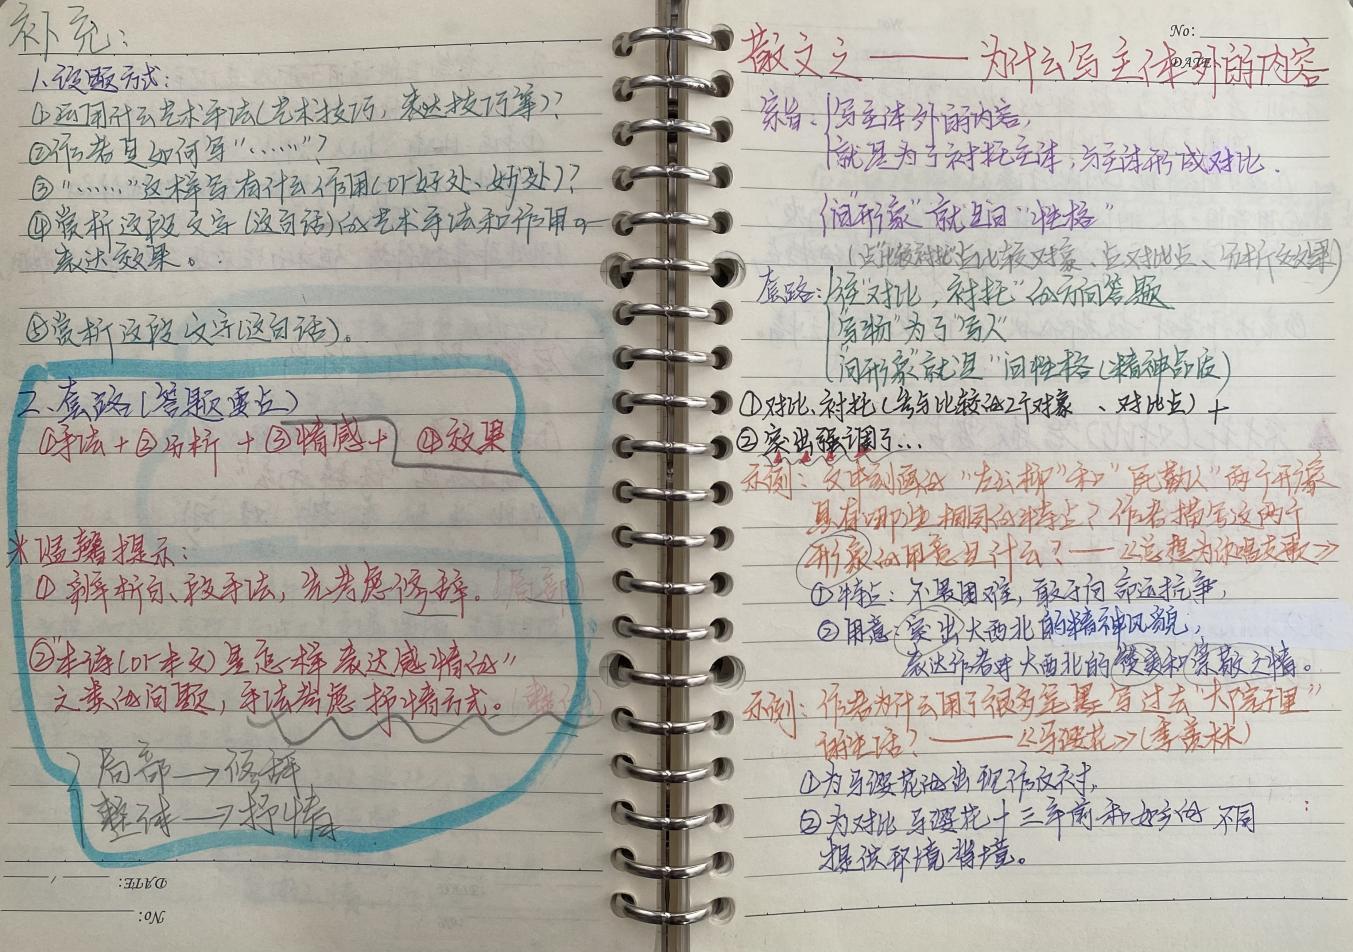 补充：
1.设题方式：
①运用什么艺术手法(艺术技巧，表达技巧等)？
②作者是如何写“……”？
③“……”这样写有什么作用(or好处、妙处)？
④赏析这段文字(这句话)的艺术手法和作用。
表达效果。
⑤赏析这段文字(这句话)。
2.套路(答题要点)
①手法+②分析+③情感+④效果
*温馨提示：
①辨析句、段手法，先考虑修辞。(局部)
②“本诗(or本文)是怎样表达感情的”
之类的问题，手法考虑抒情方式。(整体)
局部→修辞
整体→抒情
DATE:
No:
No:
DATE:
散文之——为什么写主体外的内容
宗旨：写主体外的内容，
就是为了衬托主体，与主体形成对比.
“问形象”就是问“性格”
(点“比较衬托”点比较对象、点对比点、分析文效果)
套路：往“对比，衬托”的方向答题
“写物”为了“写人”
“问形象”就是“问性格(精神品质)
①对比、衬托(参与比较的2个对象、对比点)+
②突出强调了…
示例：文中刻画的“左公柳”和“民勤人”两个形象
具有哪些相同的特点？作者描写这两个
形象的用意是什么？——《总想为你唱支歌》
①特点：不畏困难，敢于向命运抗争，
②用意：突出大西北的精神风貌，
表达作者对大西北的馒爱和崇敬之情。
示例：作者为什么用了很多笔墨写过去“大院子里”
的生活？——《马缨花》(季羡林)
①为马缨花的出现作反衬，
②为对比马缨花十三年前和如今的不同
提供环境背境。